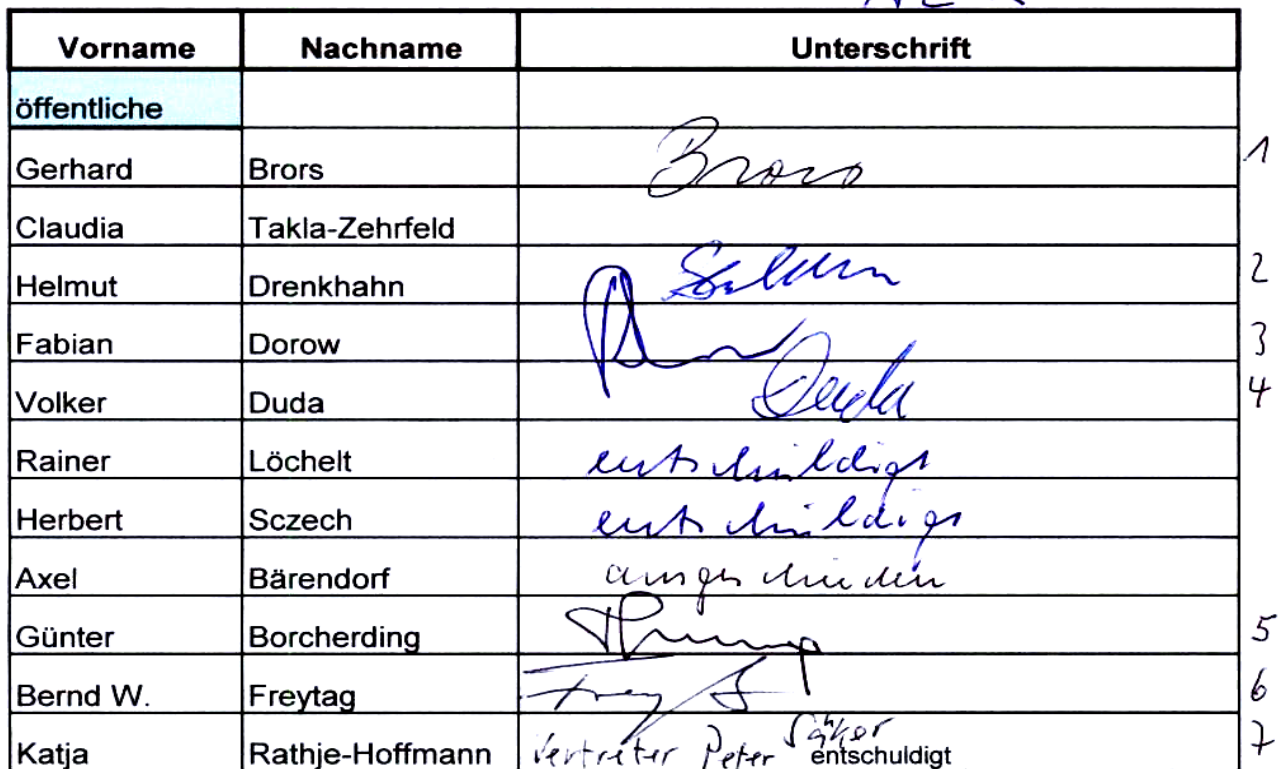 Vorname Nachname Unterschrift
öffentliche
Gerhard Brors Brors 1
Claudia Takla-Zehrfeld
Helmut Drenkhahn 2
Fabian Dorow 3
Volker Duda Duda 4
Rainer Löchelt entschuldigt
Herbert Sczech entschuldigt
Axel Bärendorf ausgeschieden
Günter Borcherding 5
Bernd W. Freytag Freytag 6
Katja Rathje-Hoffmann Vertreter Peter entschuldigt 7